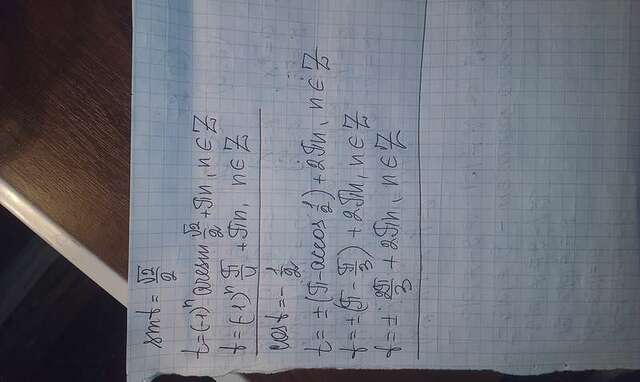 sint = √2/2
t = (-1)ⁿ arcsin √2/2 + πn, n ∈ Z
t = (-1)ⁿ π/4 + πn, n ∈ Z
cost = -1/2
t = ±(π - arccos 1/2) + 2πn, n ∈ Z
t = ±(π - π/3) + 2πn, n ∈ Z
t = ± 2π/3 + 2πn, n ∈ Z